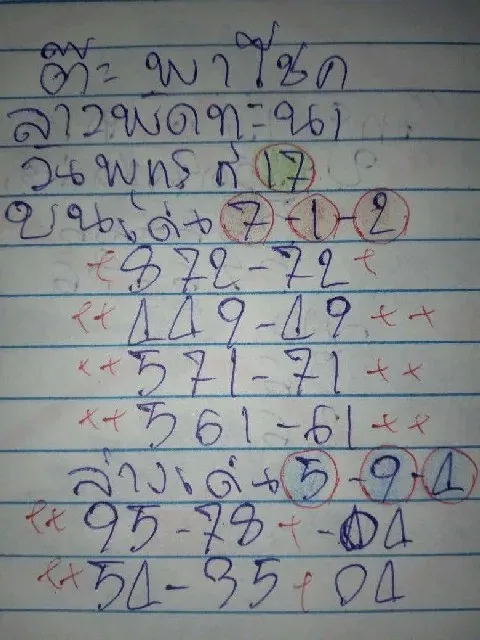 ต๊ะ พาโชค
ลาวพัดทะนา
วันพุทธ ที่ 17
บนเด่น 7-1-2
+872-72+
++449-49++
++571-71++
++561-61++
ล่างเด่น 5-9-4
++95-78+-04
++54-35+04